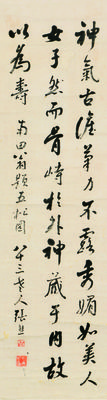 神氣古澹筆力不露秀媚如美人
女子然而骨峙於外神藏于內故
以為壽 南田翁題五松圖 八十三老人張熊